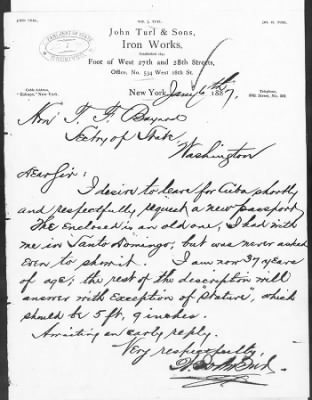 John Turl & Sons,
Iron Works,
Foot of West 27th and 28th Streets,
Office, No. 534 West 28th St.
New York, Jany 6th 1887.
Hon T. F. Bayard
Secty of State
Washington
Dear Sir:
I desire to leave for Cuba shortly
and respectfully request a new passport.
The enclosed is an old one; I had with
me in Santo Domingo; but was never asked
even to show it. I am now 37 years
of age; the rest of the description will
answer with exception of stature, which
should be 5 ft, 9 inches.
Awaiting an early reply.
Very respectfully,